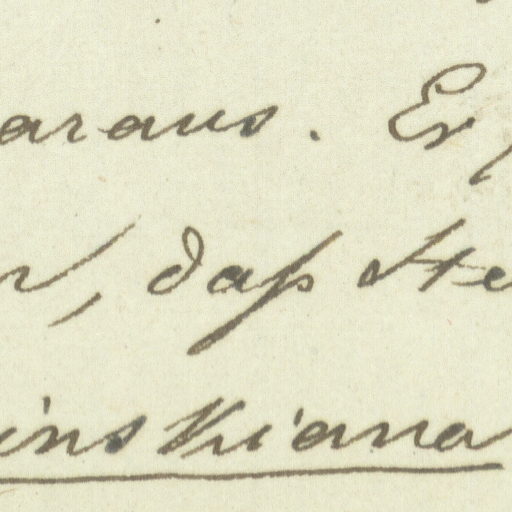 araus. Er
, daß Ste
inskiana